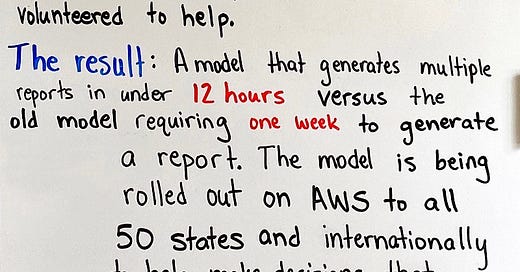 volunteered to help.
The result: A model that generates multiple
reports in under 12 hours versus the
old model requiring one week to generate
a report. The model is being
rolled out on AWS to all
50 states and internationally
to help make decisions that